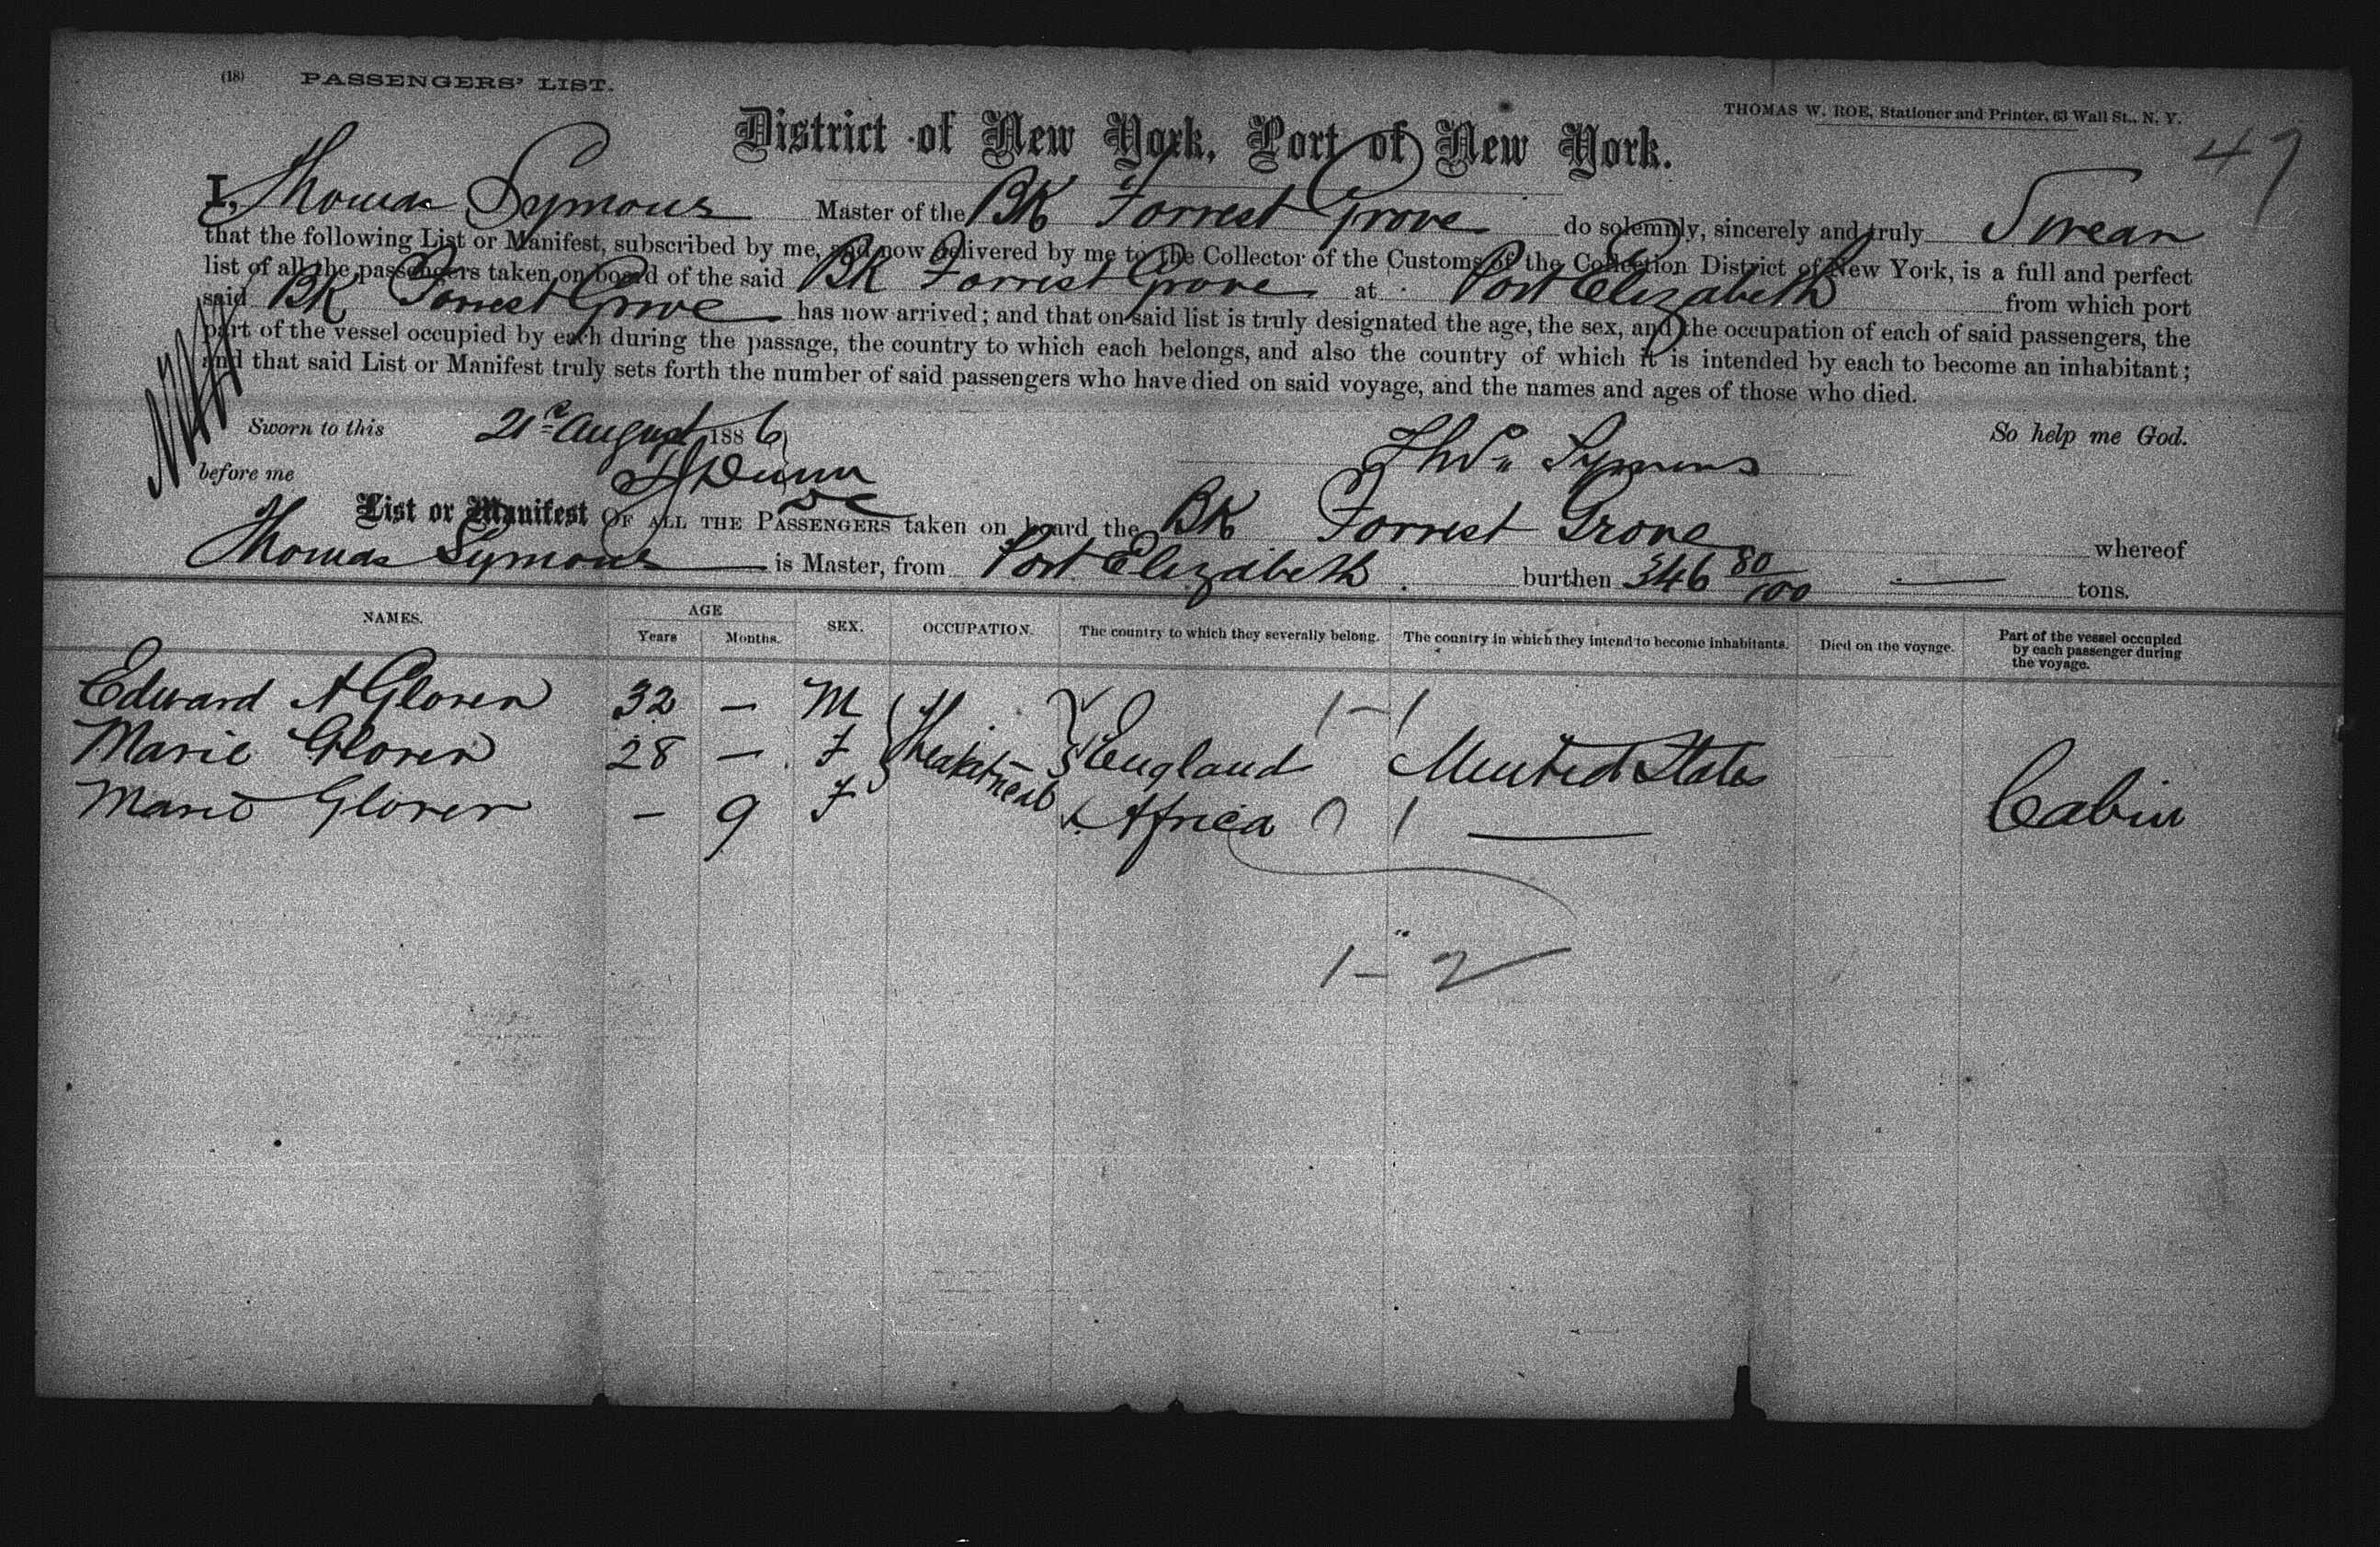 (18) PASSENGERS' LIST.
THOMAS W. ROE, Stationer and Printer, 63 Wall St., N. Y.
47
District of New York, Port of New York.
I, Thomas Symons Master of the BK Forrest Grove do solemnly, sincerely and truly Swear
that the following List or Manifest, subscribed by me, and now delivered by me to the Collector of the Customs of the Collection District of New York, is a full and perfect
list of all the passengers taken on board of the said BK Forrest Grove at Port Elizabeth from which port
said BK Forrest Grove has now arrived; and that on said list is truly designated the age, the sex, and the occupation of each of said passengers, the
part of the vessel occupied by each during the passage, the country to which each belongs, and also the country of which it is intended by each to become an inhabitant;
and that said List or Manifest truly sets forth the number of said passengers who have died on said voyage, and the names and ages of those who died.
Sworn to this 21st August 1886 So help me God.
before me Dunn Thos Symons
List or Manifest OF ALL THE PASSENGERS taken on board the BK Forrest Grove whereof
Thomas Symons is Master, from Port Elizabeth burthen 346 80/100 tons.
NAMES. AGE Years Months. SEX. OCCUPATION. The country to which they severally belong. The country in which they intend to become inhabitants. Died on the voyage. Part of the vessel occupied by each passenger during the voyage.
Edward A Glover 32 — M 1 - 1
Marie Glover 28 — F Theatrical England United States
Marie Glover — 9 F Africa 1 — Cabin
1 - 2